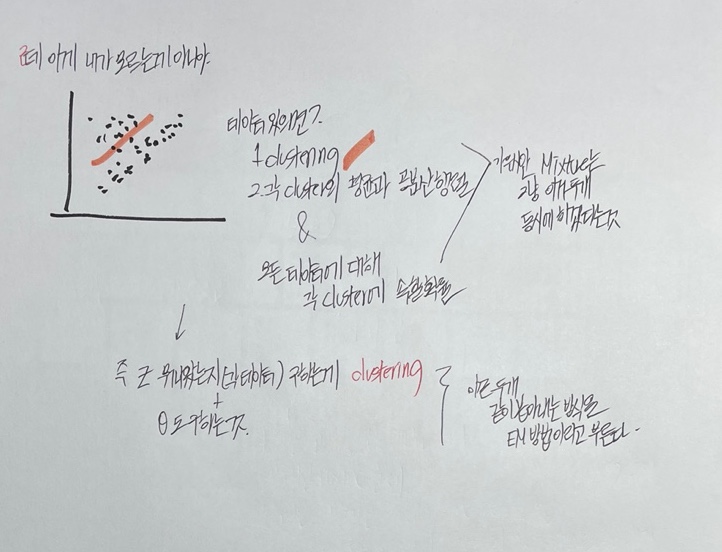 근데 이게 내가 모르는게 아니야
데이터 있으면?
1. clustering
2. 각 cluster의 평균과 공분산 행렬
&
모든 데이터에 대해
각 cluster에 속할 확률
가우시안 Mixture는
그냥 이거 두개
동시에 하겠다는것
즉 Z 뭐나왔는지(각 데이터) 구하는게 clustering
+
θ도 구하는것.
이런 두개
같이 뽑아내는 방식을
EM 방법이라고 부른다.